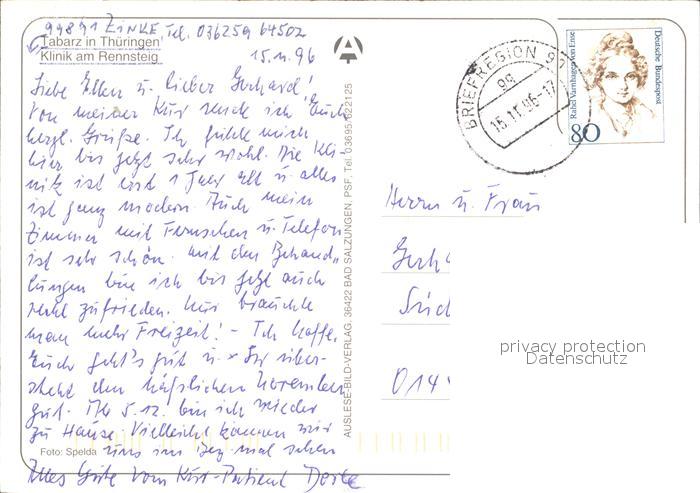 99891 ZINKE, Tel. 036259 64502
Tabarz in Thüringen
Klinik am Rennsteig
15.11.96
Liebe Ellen u. lieber Gerhard!
Von meiner Kur sende ich Euch
herzl. Grüße. Ich fühle mich
hier bis jetzt sehr wohl. Die Kli-
nik ist erst 1 Jahr alt u. alles
ist ganz modern. Auch mein
Zimmer mit Fernsehen u. Telefon
ist sehr schön. Mit den Behand-
lungen bin ich bis jetzt auch
recht zufrieden. Nur brauchte
man mehr Freizeit! - Ich hoffe,
Euch geht's gut u. Ihr über-
steht den häßlichen November
gut. Ab 5.12. bin ich wieder
zu Hause. Vielleicht können wir
uns im Dez. mal sehen
Foto: Spelda
Alles Gute vom Kur-Patient
AUSLESE-BILD-VERLAG, 36422 BAD SALZUNGEN, PSF, Tel. 03695/622125
BRIEFREGION 99
99
15.11.96-17
Rahel Varnhagen von Ense
Deutsche Bundespost
80
Herrn u. Frau
Gerh
Süd
014
privacy protection
Datenschutz